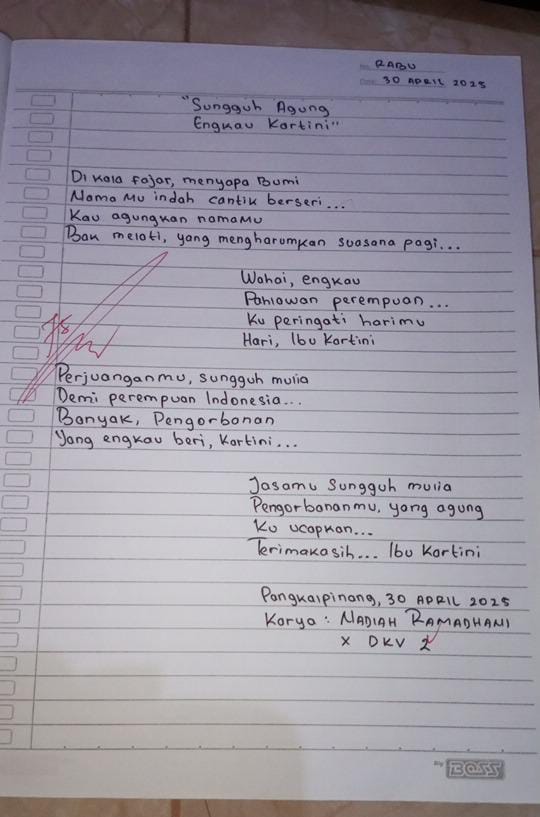 No. RABU
Date. 30 APRIL 2025
"Sungguh Agung
Engkau Kartini"
Di kala fajar, menyapa Bumi
Nama Mu indah cantik berseri...
Kau agungkan namaMu
Bak melati, yang mengharumkan suasana pagi...
Wahai, engkau
Pahlawan perempuan...
Ku peringati harimu
Hari, Ibu Kartini
Perjuanganmu, sungguh mulia
Demi perempuan Indonesia...
Banyak, Pengorbanan
Yang engkau beri, Kartini...
Jasamu Sungguh mulia
Pengorbananmu, yang agung
Ku ucapkan...
Terimakasih... Ibu Kartini
Pangkalpinang, 30 APRIL 2025
Karya : NADIAH RAMADHANI
X DKV 2
By BOSS